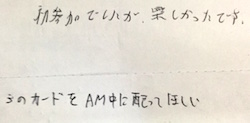 初参加でしたが、楽しかったです。
このカードをAM中に配ってほしい